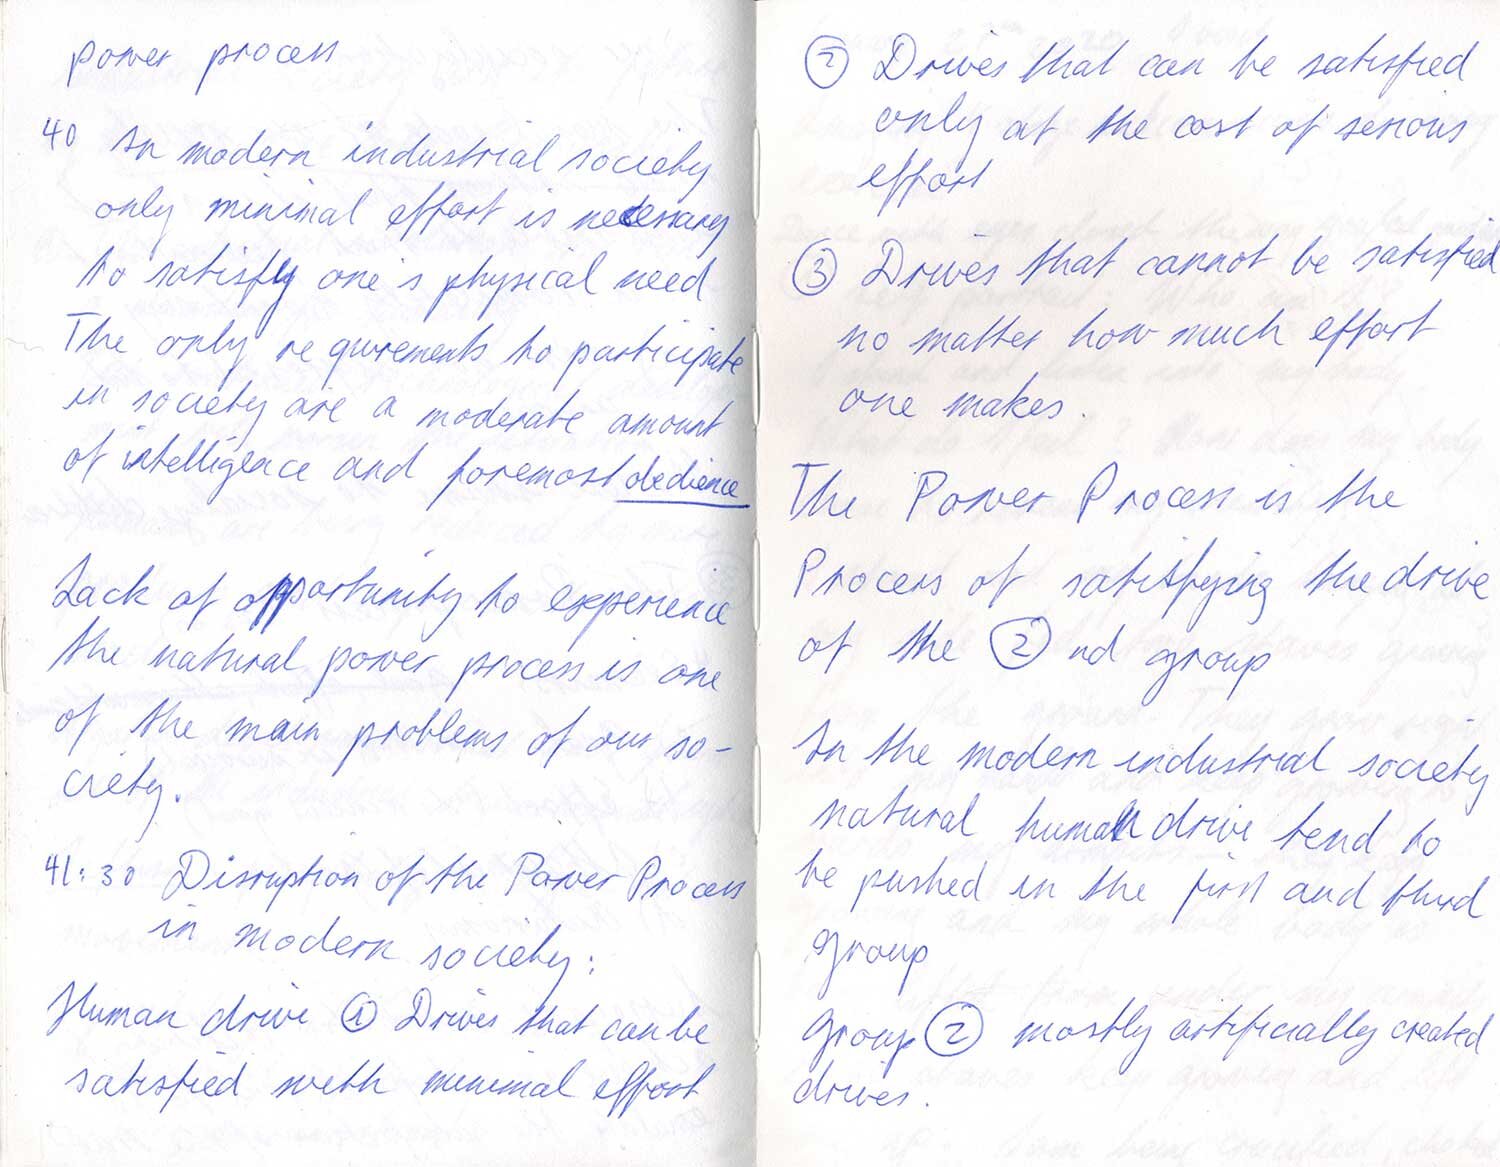 power process
40 In modern industrial society
only minimal effort is necessary
to satisfy one's physical need
The only requirements to participate
in society are a moderate amount
of intelligence and foremost obedience
Lack of opportunity to experience
the natural power process is one
of the main problems of our so-
ciety.
41:30 Disruption of the Power Process
in modern society:
Human drive ① Drives that can be
satisfied with minimal effort
② Drives that can be satisfied
only at the cost of serious
effort
③ Drives that cannot be satisfied
no matter how much effort
one makes.
The Power Process is the
Process of satisfying the drive
of the ② nd group
In the modern industrial society
natural human drive tend to
be pushed in the first and third
group
group ② mostly artificially created
drives.